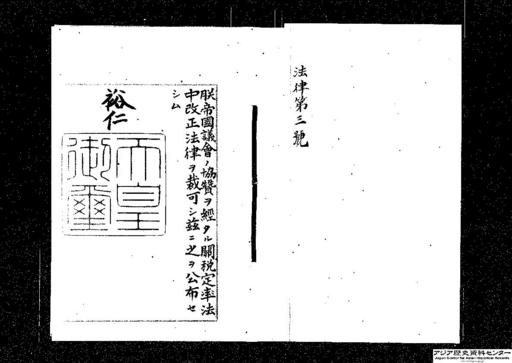 法律第三號
朕帝國議會ノ協贊ヲ經タル關稅定率法
中改正法律ヲ裁可シ茲ニ之ヲ公布セ
シム
裕仁
天皇
御璽
アジア歴史資料センター
Japan Center for Asian Historical Records